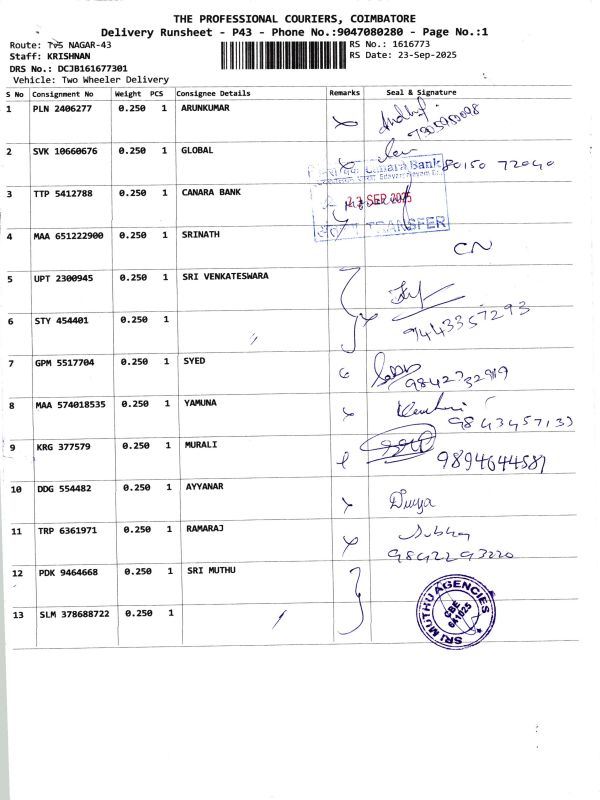 THE PROFESSIONAL COURIERS, COIMBATORE
Delivery Runsheet - P43 - Phone No.:9047080280 - Page No.:1
Route: TVS NAGAR-43 RS No.: 1616773
Staff: KRISHNAN RS Date: 23-Sep-2025
DRS No.: DCJB161677301
Vehicle: Two Wheeler Delivery
S No Consignment No Weight PCS Consignee Details Remarks Seal & Signature
1 PLN 2406277 0.250 1 ARUNKUMAR
7905950098
2 SVK 10660676 0.250 1 GLOBAL
80150 72040
Canara Bank
3 TTP 5412788 0.250 1 CANARA BANK
23 SEP 2025
TRANSFER
4 MAA 651222900 0.250 1 SRINATH
CN
5 UPT 2300945 0.250 1 SRI VENKATESWARA
6 STY 454401 0.250 1
9443357293
7 GPM 5517704 0.250 1 SYED
9842732919
8 MAA 574018535 0.250 1 YAMUNA
9843457133
9 KRG 377579 0.250 1 MURALI
9894644581
10 DDG 554482 0.250 1 AYYANAR
Divya
11 TRP 6361971 0.250 1 RAMARAJ
9842293220
12 PDK 9464668 0.250 1 SRI MUTHU
13 SLM 378688722 0.250 1
SRI MUTHU AGENCIES
CBE
641025